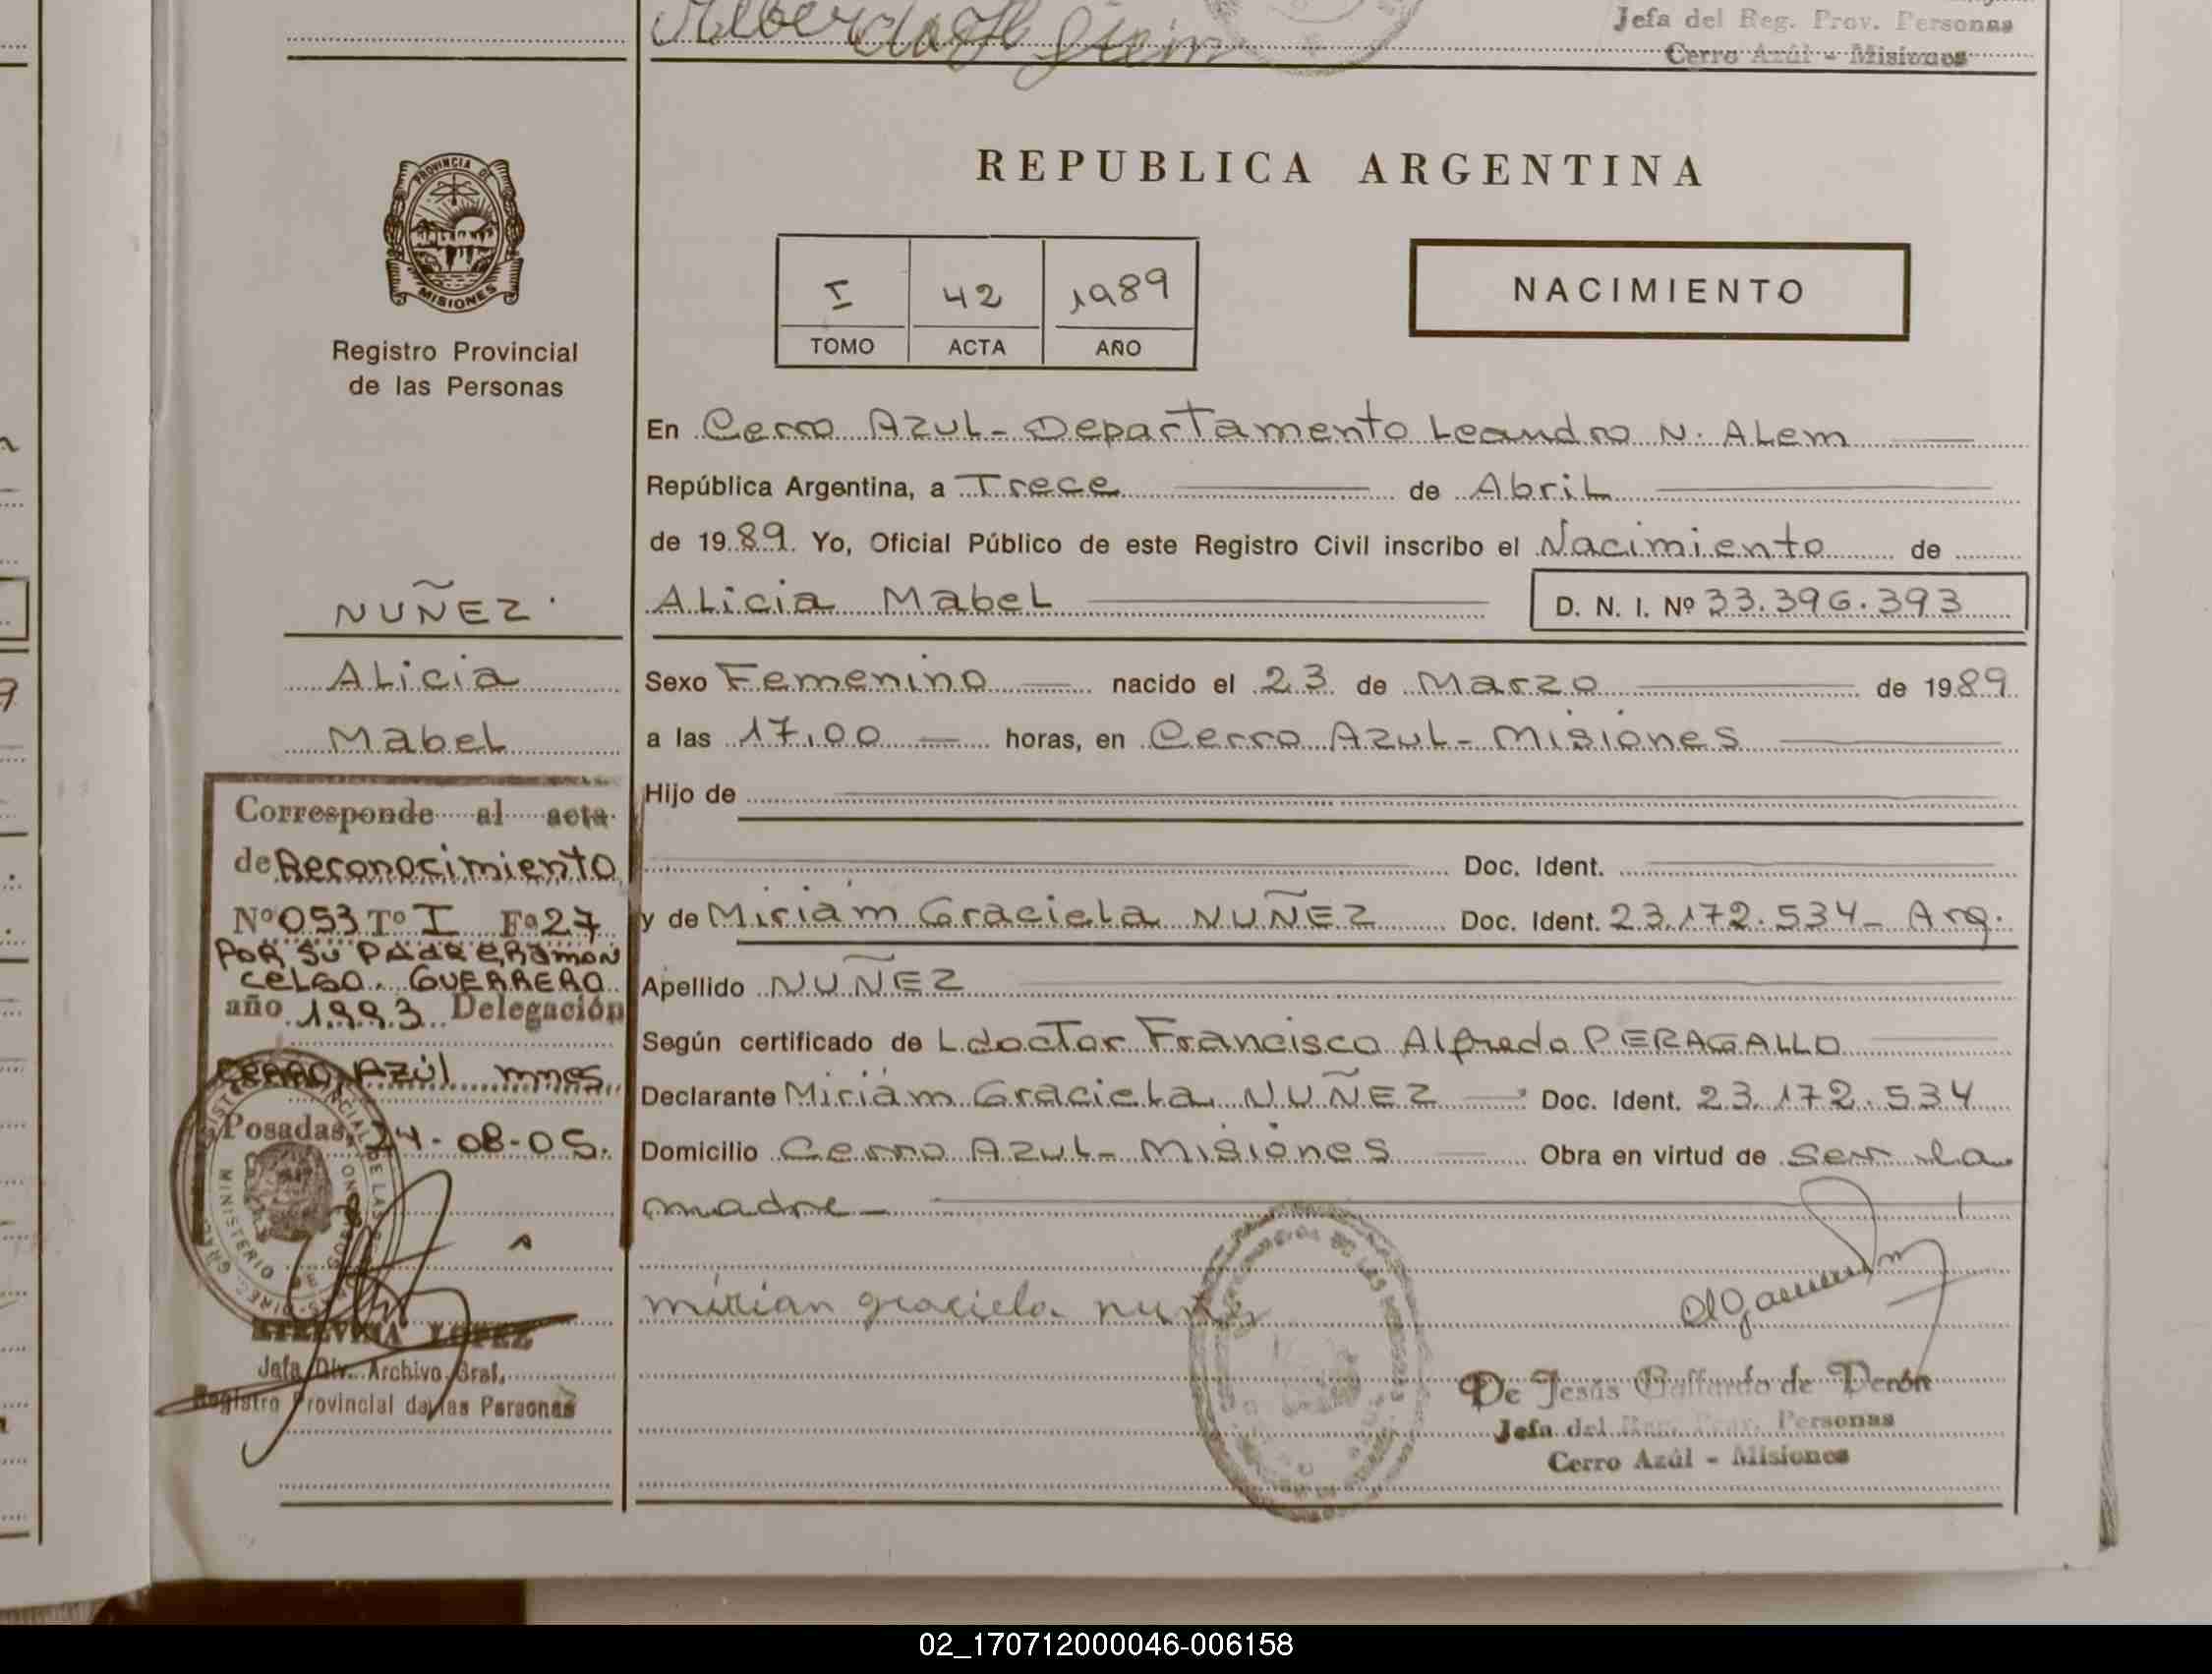 Jefa del Reg. Prov. Personas
Cerro Azúl - Misiones
PROVINCIA DE
MISIONES
Registro Provincial
de las Personas
REPUBLICA ARGENTINA
I 42 1989
TOMO ACTA AÑO
NACIMIENTO
En Cerro Azul - Departamento Leandro N. Alem
República Argentina, a Trece de Abril
de 1989. Yo, Oficial Público de este Registro Civil inscribo el Nacimiento de
Alicia Mabel D. N. I. Nº 33.396.393
NUÑEZ
Alicia
Mabel
Sexo Femenino nacido el 23 de Marzo de 1989
a las 17,00 horas, en Cerro Azul - Misiones
Hijo de
Doc. Ident.
y de Miriam Graciela NUÑEZ Doc. Ident. 23.172.534 - Arg.
Apellido NUÑEZ
Según certificado de L doctor Francisco Alfredo PERAGALLO
Declarante Miriam Graciela NUÑEZ Doc. Ident. 23.172.534
Domicilio Cerro Azul - Misiones Obra en virtud de ser la
madre -
Corresponde al acta
de Reconocimiento
Nº 053 Tº I Fº 27
POR SU PADRE, RAMON
CELSO GUERRERO
año 1993 Delegación
CERRO AZÚL mnes
Posadas, 24-08-05.
MINISTERIO
LOPEZ
Jefa Div. Archivo Gral.
Registro Provincial de las Personas
mirian graciela nuñez
De Jesús Gallardo de Verón
Jefa del Reg. Prov. Personas
Cerro Azúl - Misiones
02_170712000046-006158